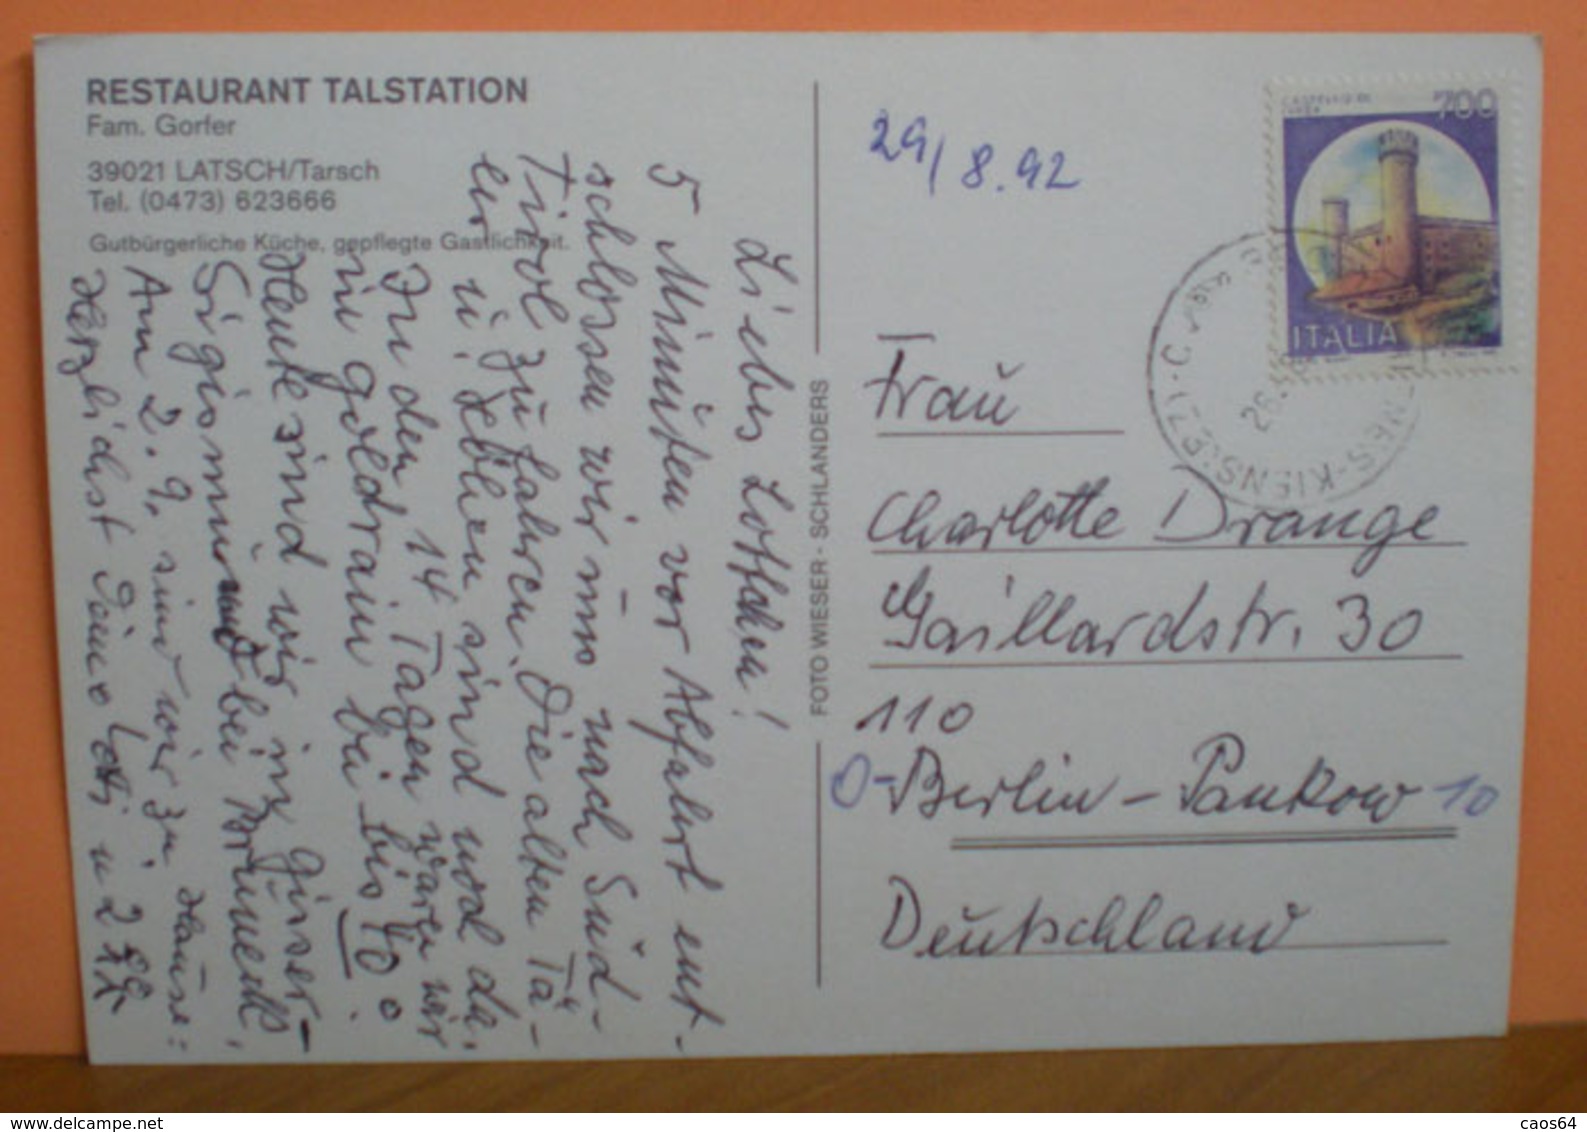 RESTAURANT TALSTATION
Fam. Gorfer
39021 LATSCH/Tarsch
Tel. (0473) 623666
Gutbürgerliche Küche, gepflegte Gastlichkeit.
Liebes Lottchen!
5 Minuten vor Abfahrt ent-
schlossen wir uns nach Süd-
Tirol zu fahren. Die alten Tä-
ler u. Höhen sind noch da.
In den 14 Tagen waren wir
in Goldrain bei bis 40°.
Heute sind wir im
Sigismund bei Bruneck.
Am 2.9. sind wir zu Hause.
Herzlichst Deine Lotti u
FOTO WIESER - SCHLANDERS
29/8.92
CASTELLO DI
IVREA
700
ITALIA
26.
KIENS
Frau
Charlotte Drange
Gaillardstr. 30
110
O-Berlin-Pankow 10
Deutschland
www.delcampe.net
caos64